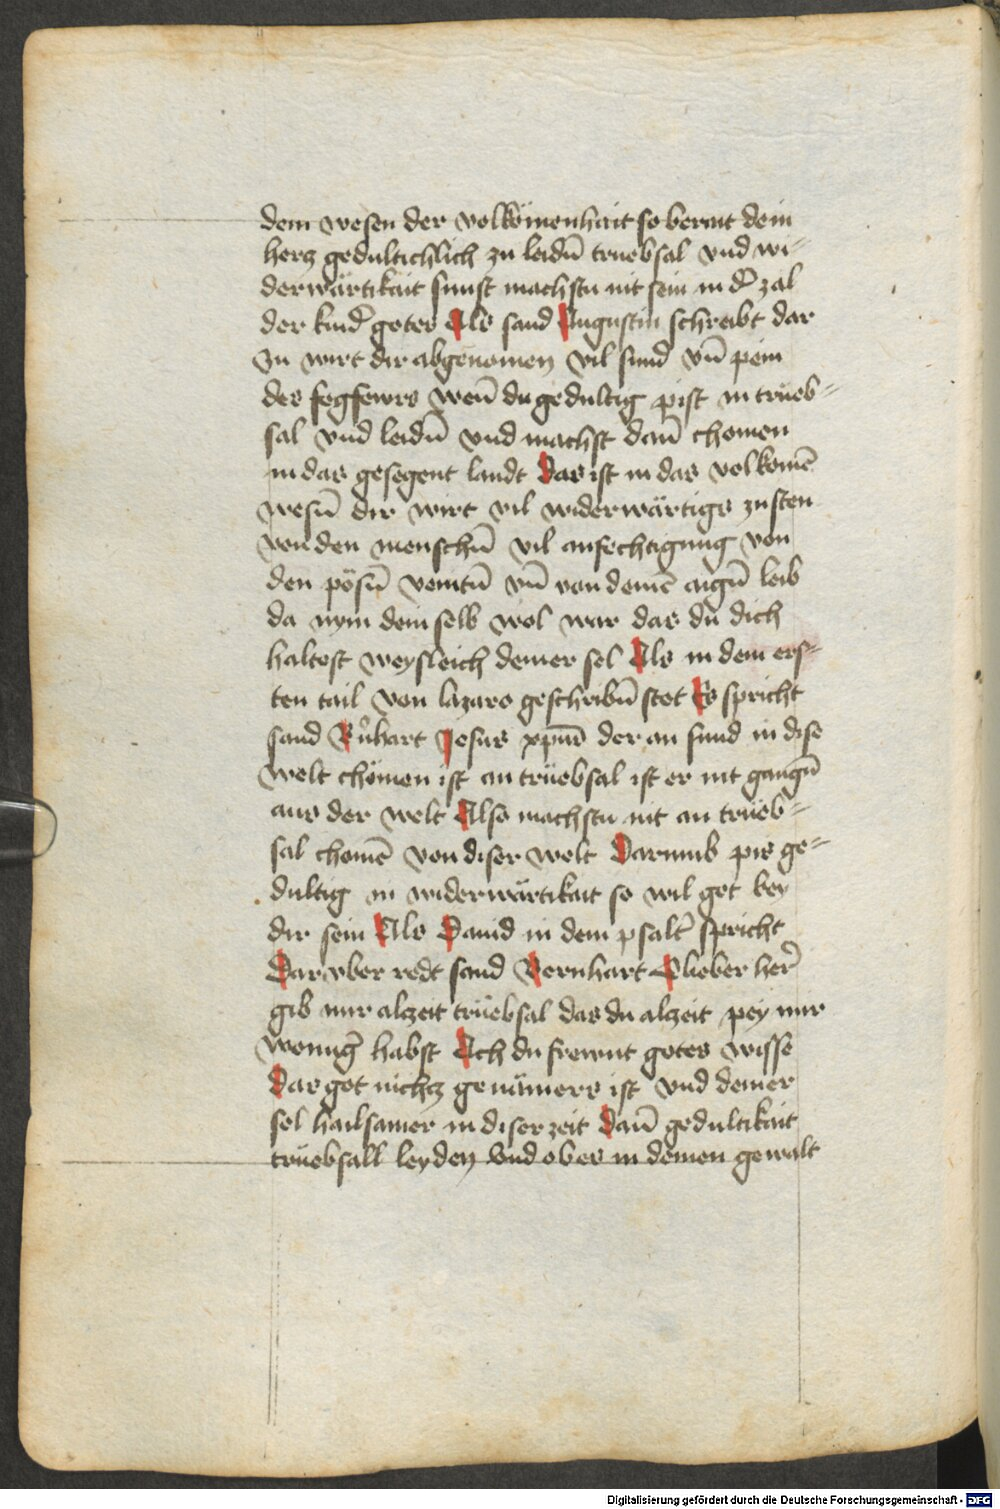 dem wesen der volkömenhait so berait dein
hercz gedultichlich zu leidn̄ trüebsal vnd wi-
derwärtikait sunst machstu nit sein in d̾ zal
der kind̾ gotes Als sand Augustin schreibt dar
zu wirt dir abgenomen vil sund vn̄ pein
des fegfewrs wen̄ du gedultig pist in trüeb-
sal vnd leidn̄ vnd machst dan̄ chomen
in das gesegent landt Das ist in das volkomē
wesn̄ dir wirt vil widerwärtigs zusten
von den menschn̄ vil anfechtigung von
den pösn̄ veintn̄ vn̄ von deinē aign̄ leib
da nym dein selb wol war das du dich
haltest weysleich deiner sel Als in dem ers-
ten tail von lazaro geschribn̄ stet Es spricht
sand B̾nhart Jesus xpūs der an sund in dise
welt chömen ist an trüebsal ist er nit gangn̄
aus der welt Also machstu nit an trüeb-
sal chomē von diser welt Darumb pis ge-
dultig in widerwärtikait so wil got bey
dir sein Als Dauid in dem psalt̾ spricht
Darvber redt sand Bernhart O lieber her̾
gib mir alzeit trüebsal das du alzeit pey mir
wonūg habst Ach du frewnt gotes wisse
Das got nichcz genämers ist vnd deiner
sel hailsamer in diser zeit Dan̄ gedultikait
trüebsall leyden Vnd ob es in deinen gewalt
Digitalisierung gefördert durch die Deutsche Forschungsgemeinschaft - DFG